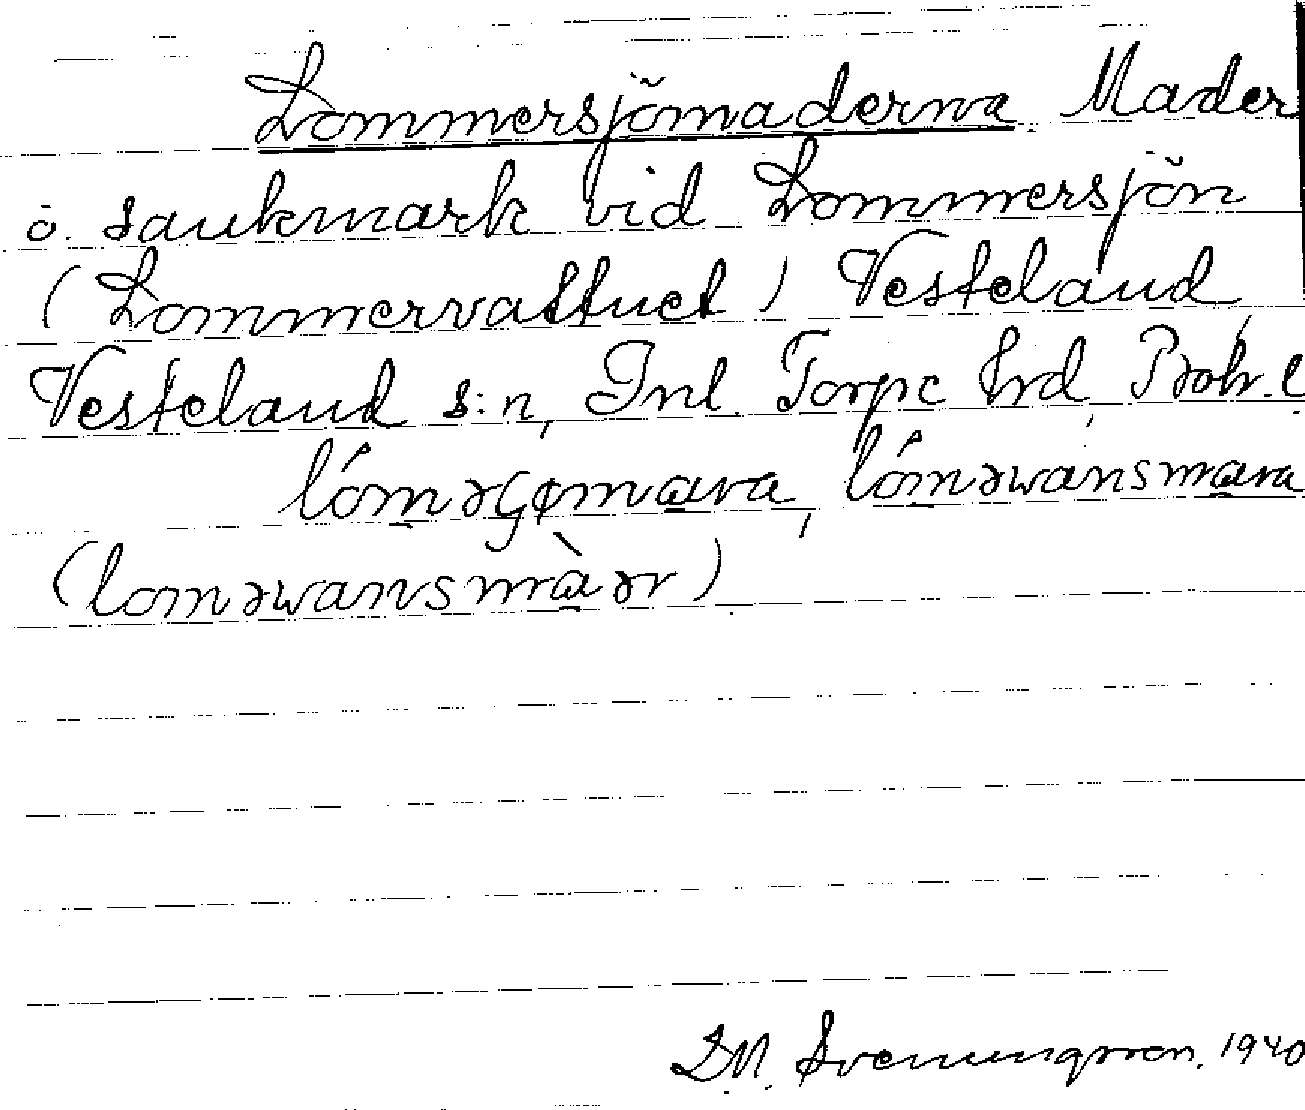 Lommersjömaderna Mader
o. sankmark vid Lommersjön
(Lommervattnet) Vesteland
Vesteland s:n, Inl. Torpe hrd, Boh. l
lómǝçømara, lómǝwansmara
(lomǝwansmàǝr)
L.M. Svenungsson. 1940